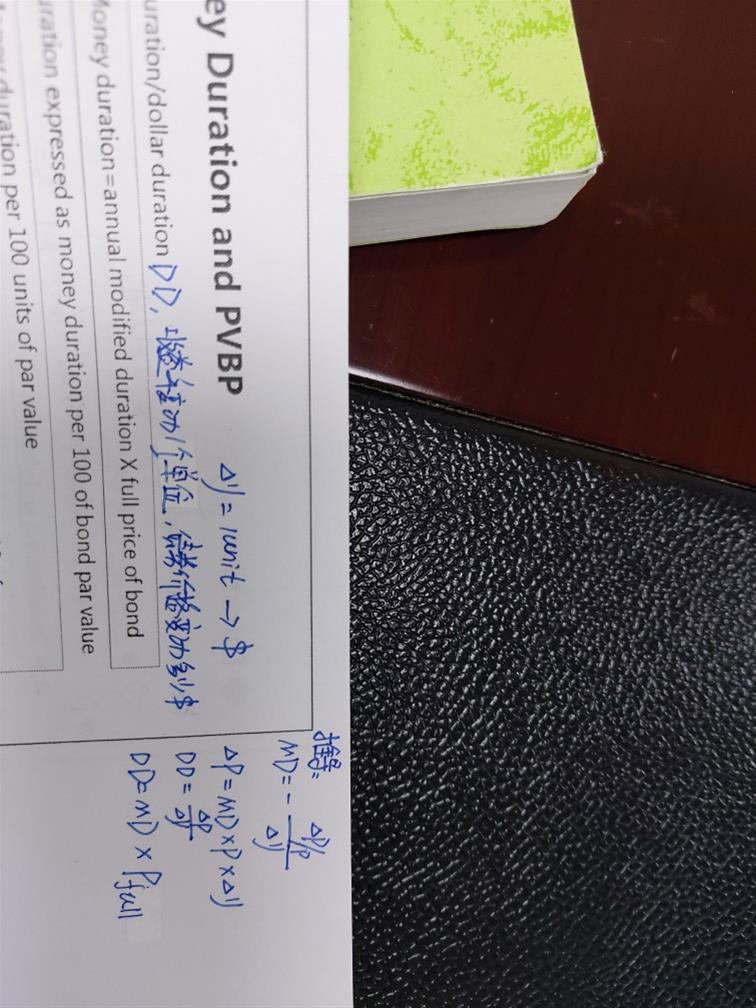 ey Duration and PVBP
Δy = 1unit → $
uration/dollar duration DD, 收益率变动1个单位, 债券价格变动多少$
Money duration=annual modified duration X full price of bond
uration expressed as money duration per 100 of bond par value
oney duration per 100 units of par value
推导:
MD = - ΔP/P / Δy
ΔP = MD × P × Δy
DD = ΔP / Δy
DD = MD × Pfull